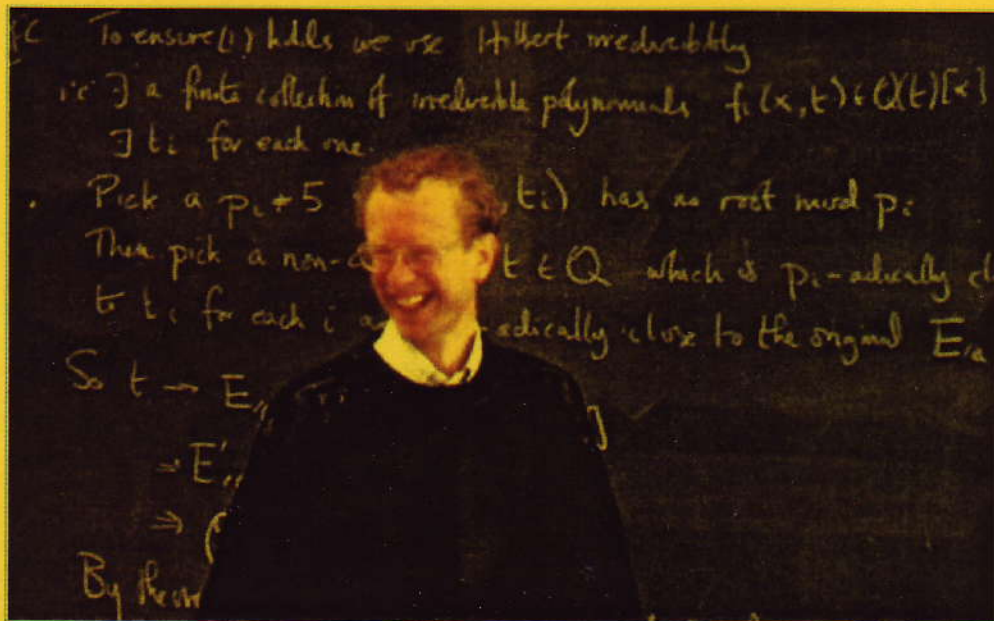 To ensure (1) holds we use Hilbert irreducibility
i.e ∃ a finite collection of irreducible polynomials fᵢ(x,t) ∈ Q(t)[x]
∃ tᵢ for each one.
Pick a pᵢ ≠ 5 , tᵢ) has no root mod pᵢ
Then pick a non- t ∈ Q which is pᵢ-adically cl
to tᵢ for each i a -adically close to the original E
So t → E
→ E'
⇒ (
By theor